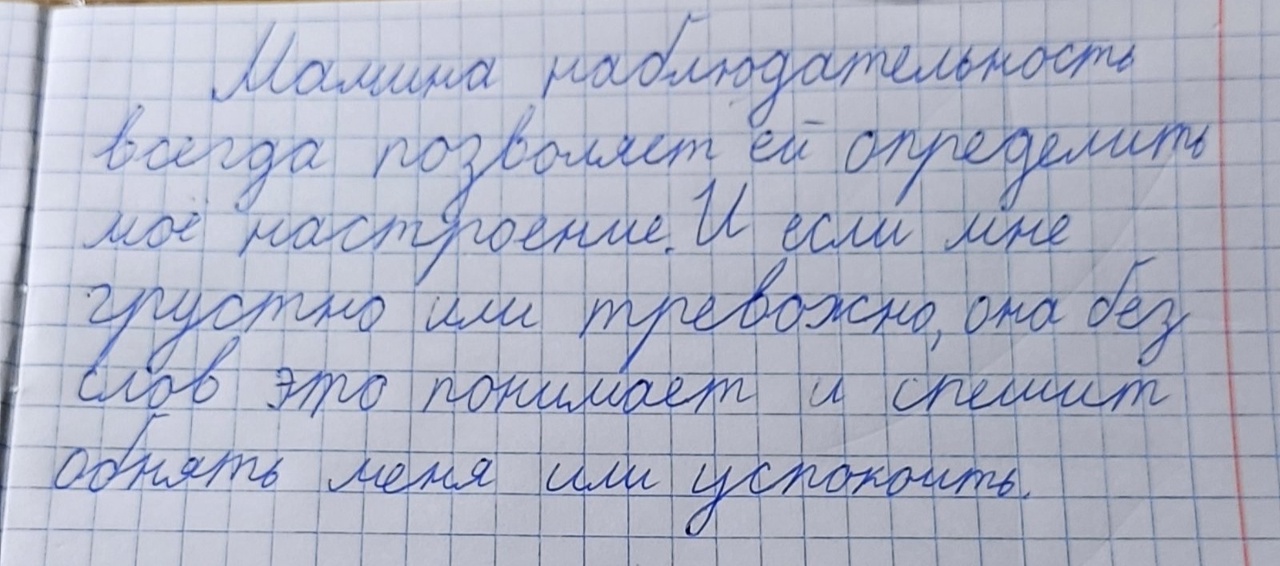 Мамина наблюдательность
всегда позволяет ей определить
моё настроение. И если мне
грустно или тревожно, она без
слов это понимает и спешит
обнять меня или успокоить.